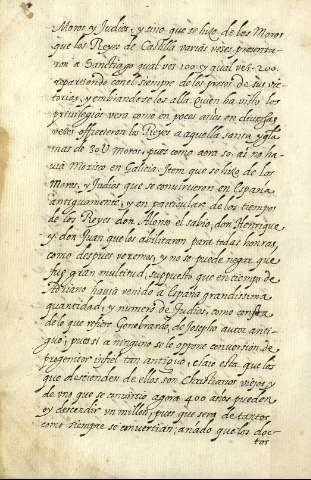 Moros y Judios, y sino que se hizo de los Moros
que los Reyes de Castilla varias veses presenta-
ron a Sanctiago qual ves 100 y qual ves 200.
repartiendo con el siempre de los presos de sus vic-
torias, y embiandose los alla. Quien ha visto los
privilegios vera como en pocos años en diversas
veses offrecieron los Reyes a aquella sancta yglª
mas de 30U moros, pues como aora so ai no ha-
uia Morisco en Galicia. Item que se hizo de los
Moros, y Judios que se convirtieron en España
antiguamente, y en particular de los tiempos
de los Reyes don Alonso el sabio, don Henrique
y don Juan que los abilitaron para todas honras,
como despues veremos, y no se puede negar que
fue gran multitud, supuesto que en tiempo de
Adriano hauia venido a España grandissima
quantidad, y numero de Judios, como consta
de lo que refiere Genebrardo, de Josepho autor anti-
guo; pues si a ninguno se le oppone conversion de
progenitor infiel tan antigua, claro esta que los
que descienden de ellos son Christianos viejos y
de uno que se convirtio agora 400 años pueden
oy descendir un millon, pues que sera de tantos
como siempre se convertian; añado que los doc-
tor